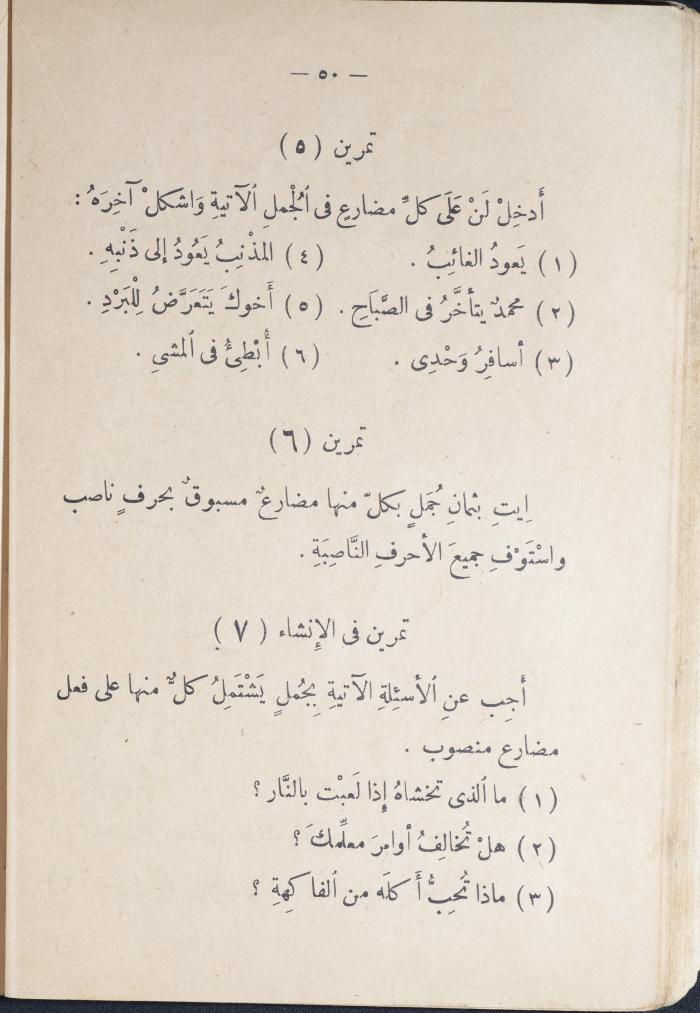 — ٥٠ —
تمرين (٥)
أَدخِلْ لَنْ عَلَى كلِّ مضارعٍ فى ٱلْجُملِ ٱلآتيةِ وَاشكلْ آخِرَهُ :
(١) يَعودُ الغائِبُ . (٤) المذْنِبُ يَعُودُ إلى ذَنْبِهِ .
(٢) محمدٌ يتأخَّرُ فى الصَّبَاحِ . (٥) أَخوكَ يَتَعَرَّضُ لِلْبَرْدِ .
(٣) أسافِرُ وَحْدِى . (٦) أُبْطِئُ فى ٱلمشىِ .
تمرين (٦)
اِيتِ بثمانِ جُمَلٍ بكلّ منها مضارعٌ مسبوقٌ بحرفٍ ناصب
واسْتَوْفِ جميعَ الأحرفِ النَّاصِبَةِ .
تمرين فى الإِنشاء (٧)
أَجِب عنِ ٱلأسئِلةِ الآتيةِ بِجُملٍ يَشْتَمِلُ كلٌّ منها على فعل
مضارع منصوب .
(١) ما ٱلذى تخشاهُ إِذا لَعبْت بالنَّار ؟
(٢) هلْ تُخالِفُ أوامرَ معلِّمكَ ؟
(٣) ماذا تُحِبُّ أَكلَه من ٱلفاكِهةِ ؟